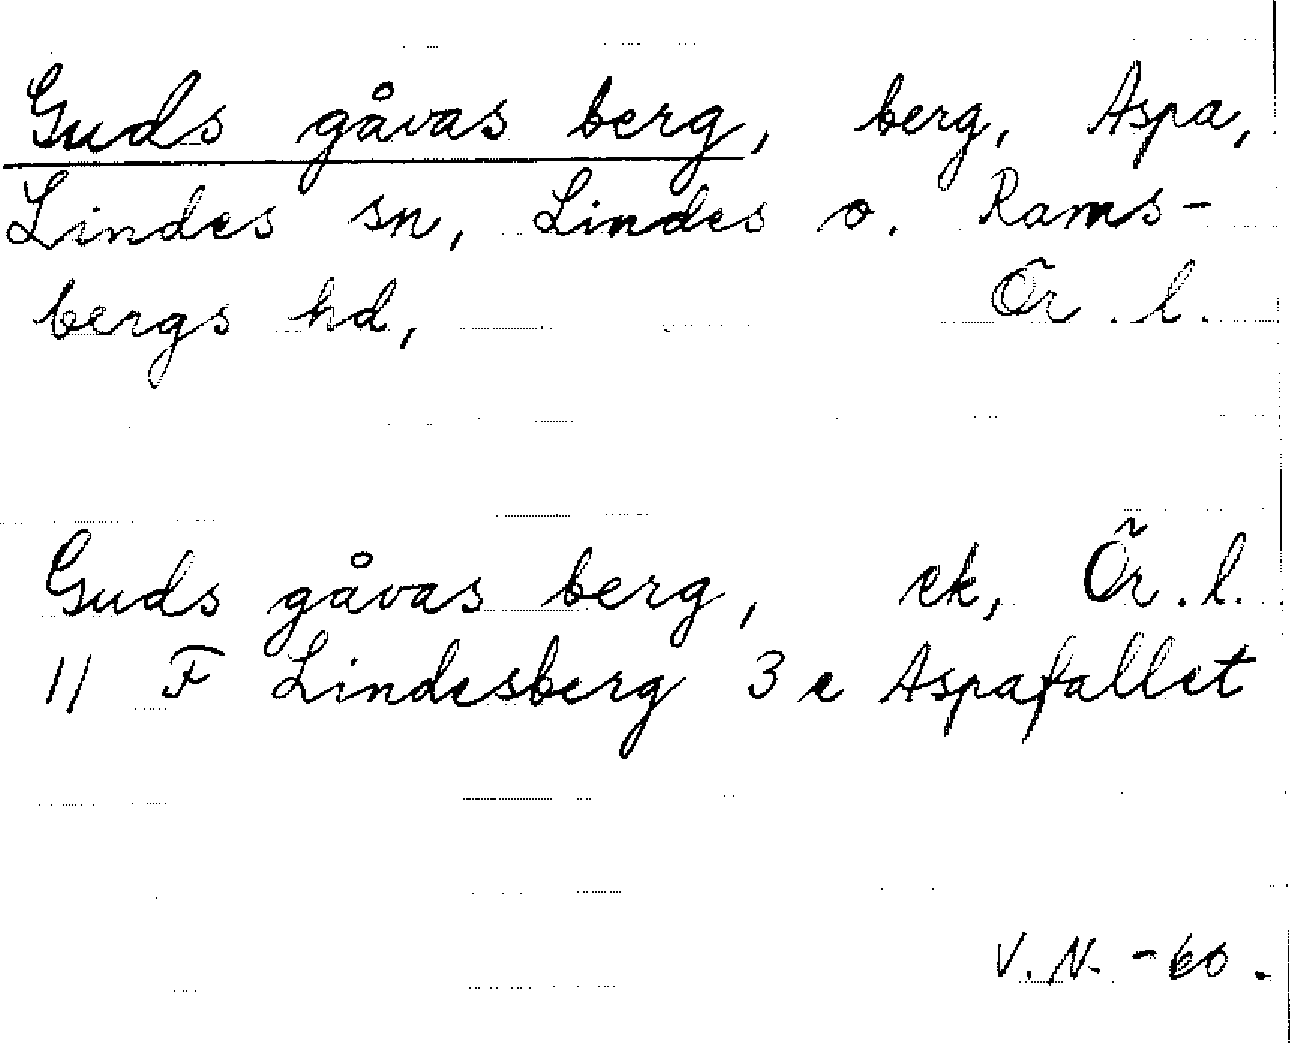 Guds gåvas berg, berg, Aspa,
Lindes sn, Lindes o. Rams-
bergs hd, Ör. l.
Guds gåvas berg, ek, Ör. l.
11 F Lindesberg 3 e Aspafallet
V. N. -60.